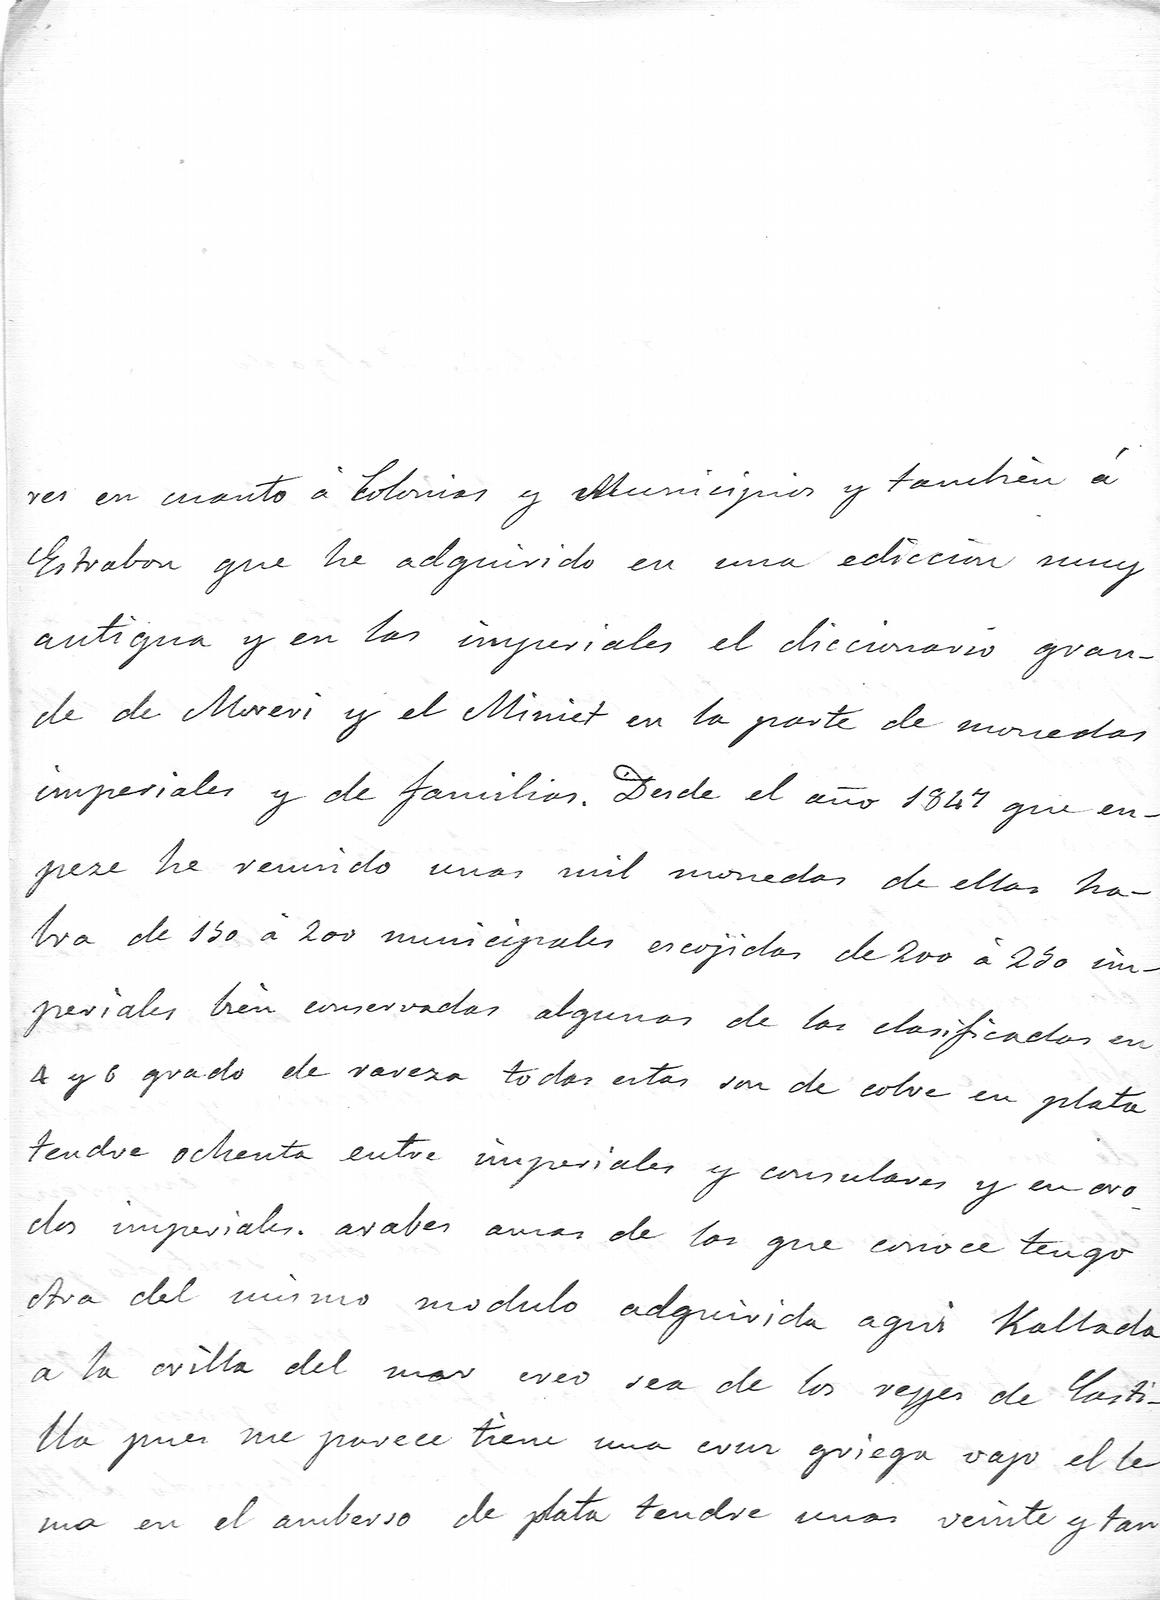 res en cuanto à Colonias y Municipios y tambièn á
Estrabon que he adquirido en una ediccion muy
antigua y en las imperiales el diccionario gran-
de de Moreri y el Miniet en la parte de monedas
imperiales y de familias. Desde el año 1847 que en-
peze he reunido unas mil monedas de ellas ha-
bra de 150 à 200 municipales escojidas de 200 à 250 im-
periales bièn conservadas algunas de las clasificadas en
4 y 6 grado de rareza todas estas son de cobre en plata
tendre ochenta entre imperiales y consulares y en oro
dos imperiales. arabes amas de las que conoce tengo
otra del mismo modulo adquirida aqui Kallada
a la orilla del mar creo sea de los reyes de Casti-
lla pues me parece tiene una cruz griega vajo el le
ma en el amberso de plata tendre unas veinte y tan